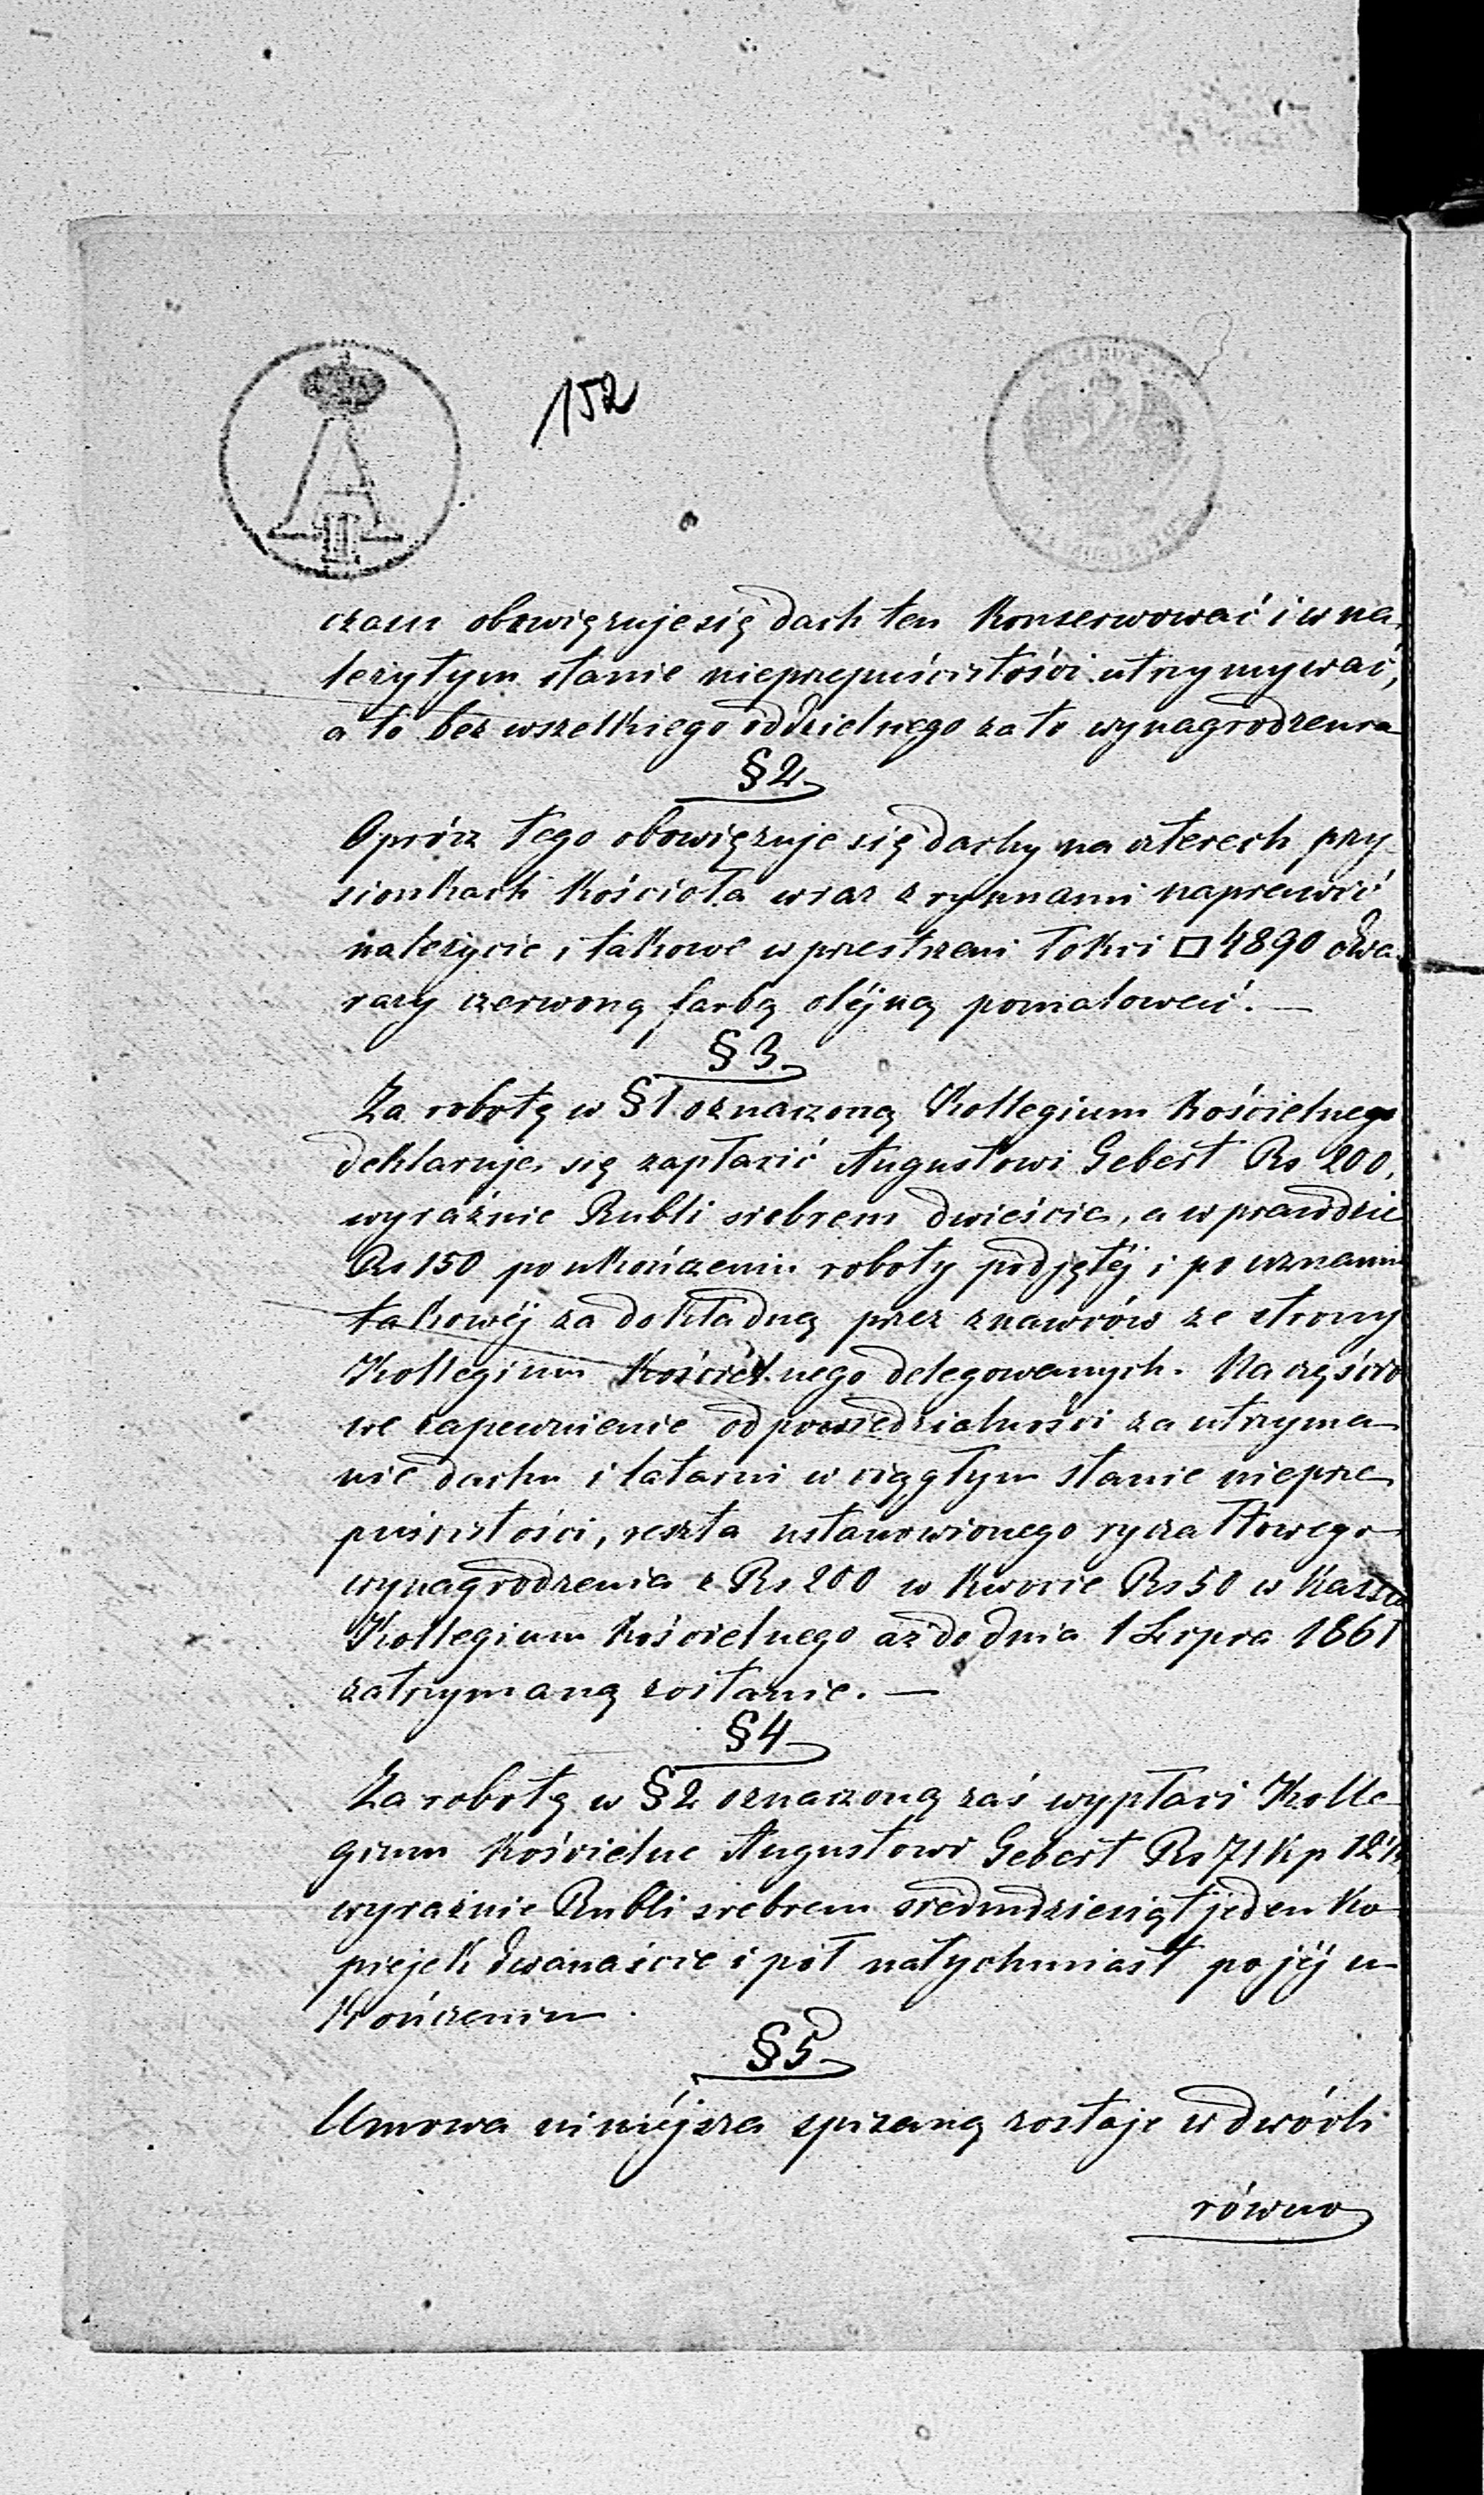 152
czasu obowięzuje się dach ten konserwować i w na-
leżytym stanie nieprzepuścistości utrzymywać,
a to bez wszelkiego oddzielnego za to wynagrodzenia
§ 2
Oprócz tego obowięzuje się dachy na czterech przy
sionkach kościoła wraz z rynnami naprawić
należycie, i takowe w przestrzeni łokci □ 4890 dwa
razy czerwoną farbą olejną pomalować. —
§ 3
Za robotę w § 1 oznaczoną Kollegium Kościelnego
deklaruje się zapłacić Augustowi Gebert Rs 200,
wyraźnie Rubli srebrem dwieście, a wprawdzie
Rs 150 po ukończeniu roboty podjętéj i po uznaniu
takowéj za dokładną przez znawców ze strony
Kollegium Kościelnego delegowanych. Na częścio
we zapewnienie odpowiedzialności za utrzyma-
nie dachu i latarni w ciągłym stanie nieprze
puścistości, reszta ustanowionego ryczałtowego
wynagrodzenia z Rs 200 w kwocie Rs 50 w Kassie
Kollegium Kościelnego aż do dnia 1 Lipca 1861
zatrzymaną zostanie. —
§ 4
Za robotę w § 2 oznaczoną zaś wypłaci Kolle-
gium Kościelne Augustowi Gebert Rs 71 Kp 12½
wyraźnie Rubli srebrem siedmdziesiąt jeden ko-
piejek dwanaście i pół natychmiast po jéj u-
kończeniu.
§ 5
Umowa niniéjsza spisaną zostaje w dwóch
równo